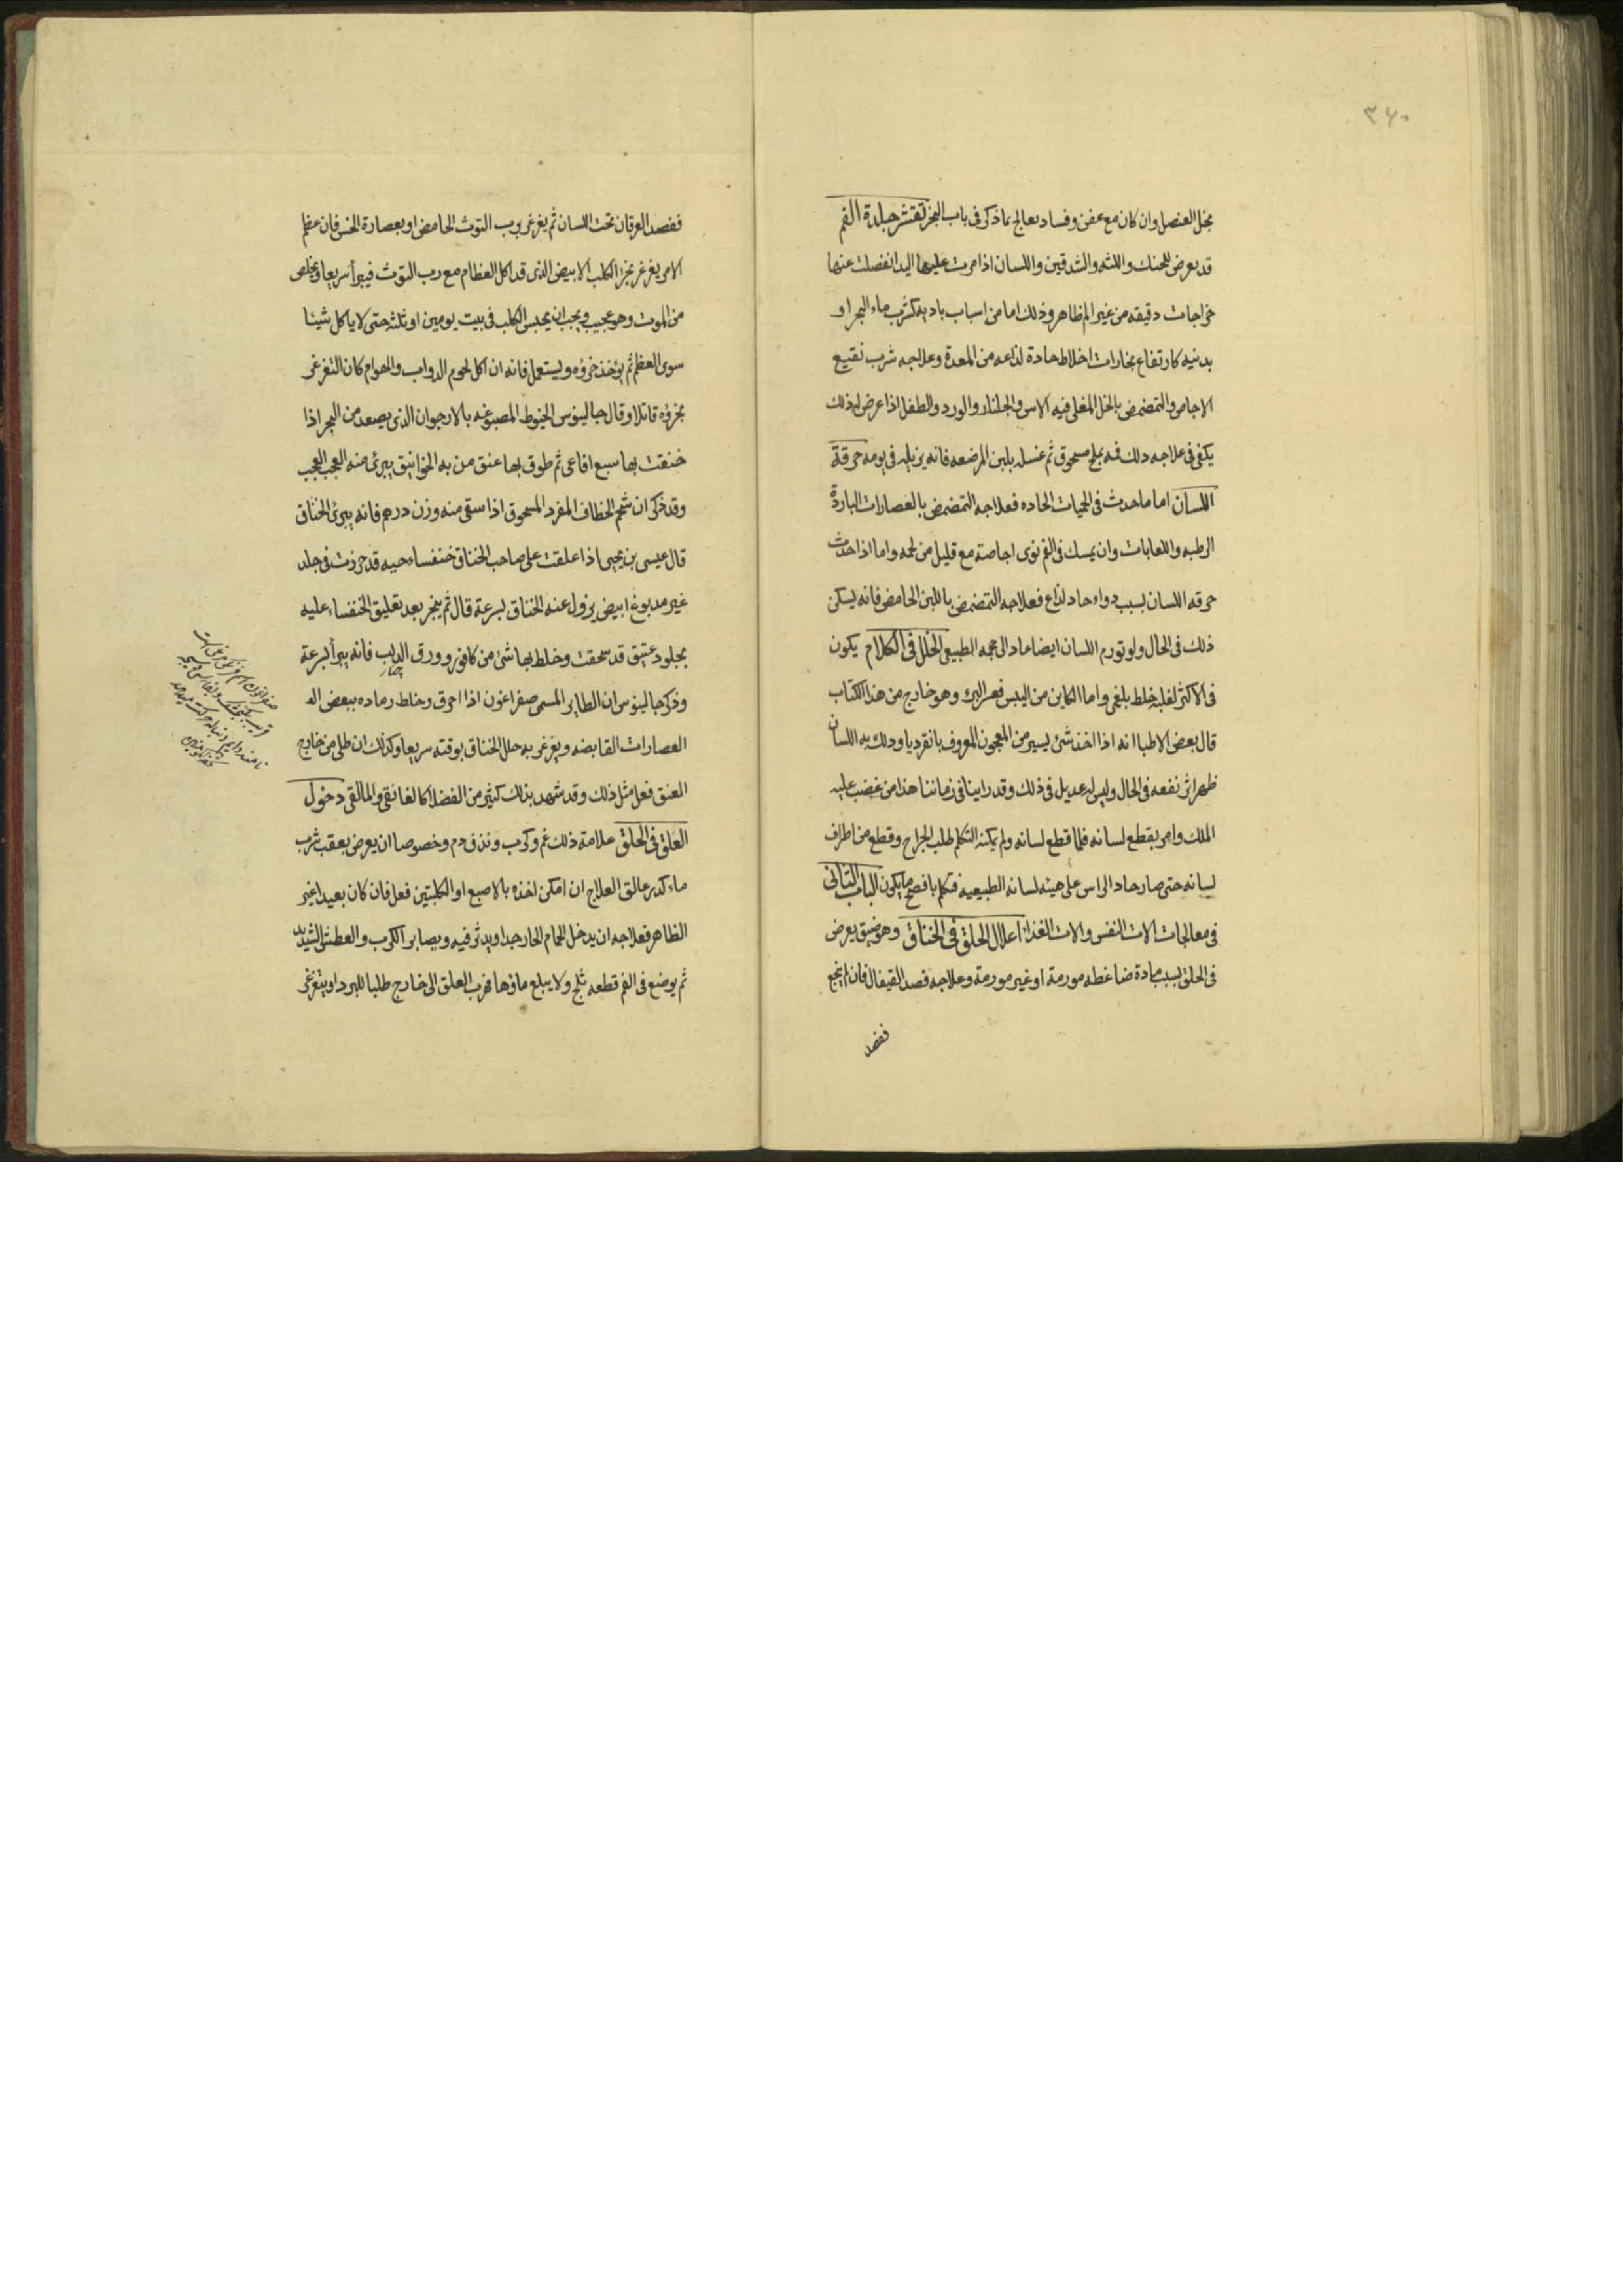 ٣٤٠
بخل العنصل وان كان مع عفن وفساد يعالج بما ذكر فى باب البخر تقشر جلدة الفم
قد يعرض للحنك واللثه والشدقين واللسان اذا مرت عليها اليد انفصلت عنها
خراجات دقيقه من غير الم ظاهر وذلك اما من اسباب باديه كشرب ماء البحر او
بدنيه كارتفاع بخارات اخلاط حادة لذاعه من المعدة وعلاجه شرب نقيع
الاجاص والتمضمض بالخل المغلى فيه الاس والجلنار والورد والطفل اذا عرض له ذلك
يكفى فى علاجه دلك فمه بملح مسحوق ثم غسله بلبن المرضعه فانه يزيله فى يومه حرقة
اللسان اما ما حدث فى الحميات الحاده فعلاجه التمضمض بالعصارات الباردة
الرطبه واللعابات وان يمسك فى الفم نوى اجاصة مع قليل من لحمه واما اذا حدث
حرقه اللسان بسبب دواء حاد لذاع فعلاجه التمضمض باللبن الحامض فانه يسكن
ذلك فى الحال ولو تورم اللسان ايضا عاد الى حجمه الطبيعى الخلل فى الكلام يكون
فى الاكثر لغلبة خلط بلغمى واما الكاين من اليبس فعسر البرء وهو خارج من هذا الكتاب
قال بعض الاطبا انه اذا اخذ شئ يسير من المعجون المعروف بانقرديا ودلك به اللسان
ظهر اثر نفعه فى الحال وليس له عديل فى ذلك وقد راينا فى زماننا هذا من غضب عليه
الملك وامر بقطع لسانه فلما قطع لسانه ولم يمكنه التكلم طلب الجراح وقطع من اطراف
لسانه حتى صار حاد الراس على هيئه لسانه الطبيعيه فتكلم بافصح ما يكون الباب الثانى
فى معالجات الات النفس والات الغذا اعلال الحلق فى الخناق وهو ضيق يعرض
فى الحلق بسبب مادة ضاغطه مورمة او غير مورمة وعلاجه فصد القيفال فان لم ينجع
ففصد
ففصد العرقان تحت اللسان ثم يغرغر برب التوث الحامض او بعصارة الخس فان عظم
الامر يغرغر بخرء الكلب الابيض الذى قد اكل العظام مع رب التوث فيبرأ سريعا ويخلص
من الموت وهو عجيب ويجب ان يحبس الكلب فى بيت يومين او ثلثه حتى لا ياكل شيئا
سوى العظم ثم يؤخذ خرؤه ويستعمل فانه ان اكل لحوم الدواب والهوام كان التغرغر
بخرؤه قاتلا وقال جالينوس الخيوط المصبوغه بالارجوان الذى يصعد من البحر اذا
خنقت بها سبع افاعى ثم طوق بها عنق من به الخوانيق يبرئ منه العجب العجيب
وقد ذكر ان شحم الخطاف المفرد المسحوق اذا سقى منه وزن درهم فانه يبرئ الخناق
قال عيسى بن يحيى اذا علقت على صاحب الخناق خنفساء حيه قد حرزت فى جلد
غير مدبوغ ابيض يزول عنه الخناق بسرعة قال ثم يبخر بعد تعليق الخنفساء عليه
بجلود عتيق قد سحقت وخلط بها شئ من كافور وورق الدلب فانه يبرأ بسرعة
وذكر جالينوس ان الطاير المسمى صفراغون اذا احرق وخلط رماده ببعض اله
العصارات القابضه ويغرغر به حلل الخناق بوقته سريعا وكذلك ان طلى من خارج
العنق فعل مثل ذلك وقد شهد بذلك كثير من الفضلا كالغافقى والمالقى دخول
العلق فى الحلق علامة ذلك غم وكرب ونزف دم وخصوصا ان يعرض بعقب شرب
ماء كدر عالق العلاج ان امكن اخذه بالاصبع او الكلبتين فعل فان كان بعيدا غير
الظاهر فعلاجه ان يدخل الحمام الحار جدا ويدثر فيه ويصابر الكرب والعطش الشديد
ثم يوضع فى الفم قطعه ثلج ولا يبلع ماؤها فخرب العلق الى خارج طلبا للبرد او يتغرغر